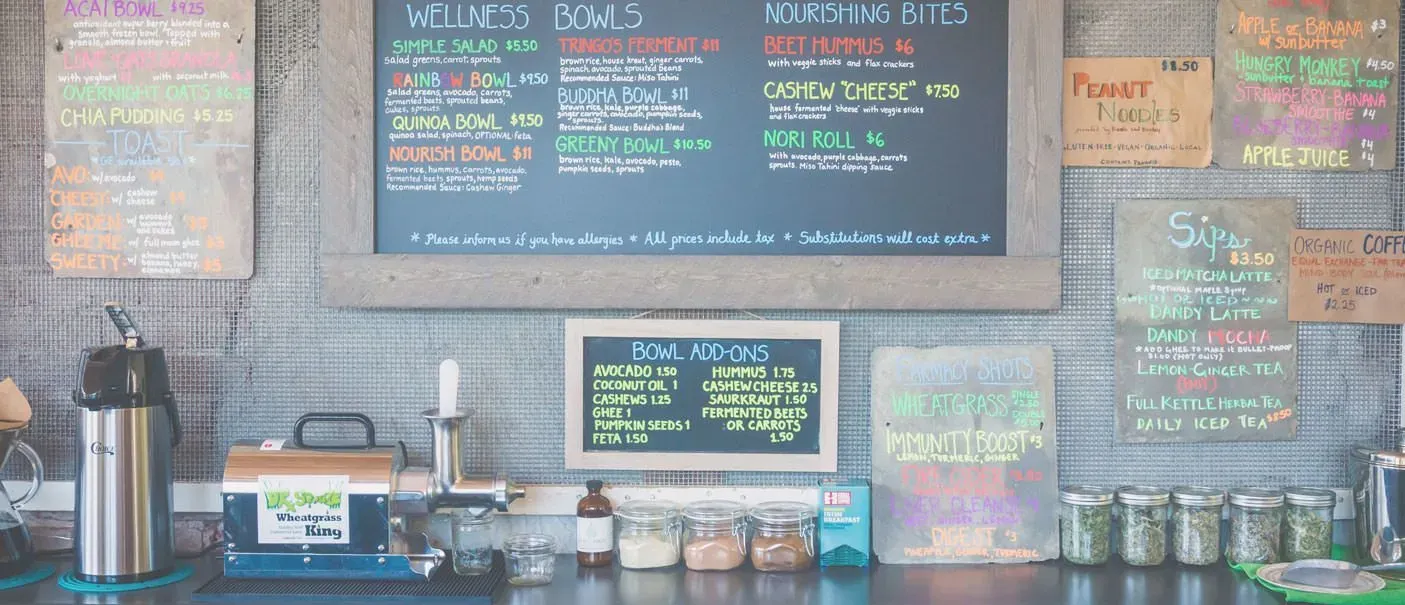 ACAI BOWL $9.25
antioxidant super berry blended into a
smooth frozen bowl. Topped with
granola, almond butter + fruit
with yoghurt with coconut milk
OVERNIGHT OATS $6.25
CHIA PUDDING $5.25
TOAST
AVO: w/ avocado
CHEESY: w/ cashew cheese
GARDEN: w/ avocado
GHEE ME: w/ full moon ghee $3
SWEETY: w/ almond butter $5
banana, honey,
cinnamon
WELLNESS BOWLS
SIMPLE SALAD $5.50
salad greens, carrot, sprouts
RAINBOW BOWL $9.50
salad greens, avocado, carrots,
fermented beets, sprouted beans,
cukes, sprouts
QUINOA BOWL $9.50
quinoa salad, spinach, OPTIONAL: feta
NOURISH BOWL $11
brown rice, hummus, carrots, avocado,
fermented beets, sprouts, hemp seeds
Recommended Sauce: Cashew Ginger
TRINGO'S FERMENT $11
brown rice, house kraut, ginger carrots,
spinach, avocado, sprouted beans
Recommended Sauce: Miso Tahini
BUDDHA BOWL $11
brown rice, kale, purple cabbage,
ginger carrots, avocado, pumpkin seeds,
sprouts
Recommended Sauce: Buddha's Blend
GREENY BOWL $10.50
brown rice, kale, avocado, pesto,
pumpkin seeds, sprouts
NOURISHING BITES
BEET HUMMUS $6
with veggie sticks and flax crackers
CASHEW "CHEESE" $7.50
house fermented 'cheese' with veggie sticks
and flax crackers
NORI ROLL $6
with avocado, purple cabbage, carrots
sprouts. Miso Tahini dipping sauce
* Please inform us if you have allergies * All prices include tax * Substitutions will cost extra *
BOWL ADD-ONS
AVOCADO 1.50
COCONUT OIL 1
CASHEWS 1.25
GHEE 1
PUMPKIN SEEDS 1
FETA 1.50
HUMMUS 1.75
CASHEW CHEESE 2.5
SAURKRAUT 1.50
FERMENTED BEETS
OR CARROTS
1.50
$8.50
PEANUT
NOODLES
GLUTEN-FREE · VEGAN · ORGANIC · LOCAL
CONTAINS PEANUTS
APPLE or BANANA $3
w/ sunbutter
HUNGRY MONKEY $4.50
sunbutter + banana toast
STRAWBERRY-BANANA
SMOOTHIE $4
$4
APPLE JUICE $4
Sips
$3.50
ICED MATCHA LATTE
*OPTIONAL MAPLE SYRUP
HOT OR ICED
DANDY LATTE
DANDY MOCHA
*ADD GHEE TO MAKE IT BULLET-PROOF
$1.00 (HOT ONLY)
LEMON-GINGER TEA
(HOT)
FULL KETTLE HERBAL TEA
DAILY ICED TEA $2.50
ORGANIC COFFE
EQUAL EXCHANGE - FAIR TRA
MIND BODY SOUL
HOT or ICED
$2.25
FARMACY SHOTS
WHEATGRASS SINGLE
DOUBLE
IMMUNITY BOOST $3
LEMON, TURMERIC, GINGER
FIRE CIDER
LIVER CLEANSE
DIGEST $3
PINEAPPLE, GINGER, TURMERIC
Wheatgrass
King
BREAKFAST